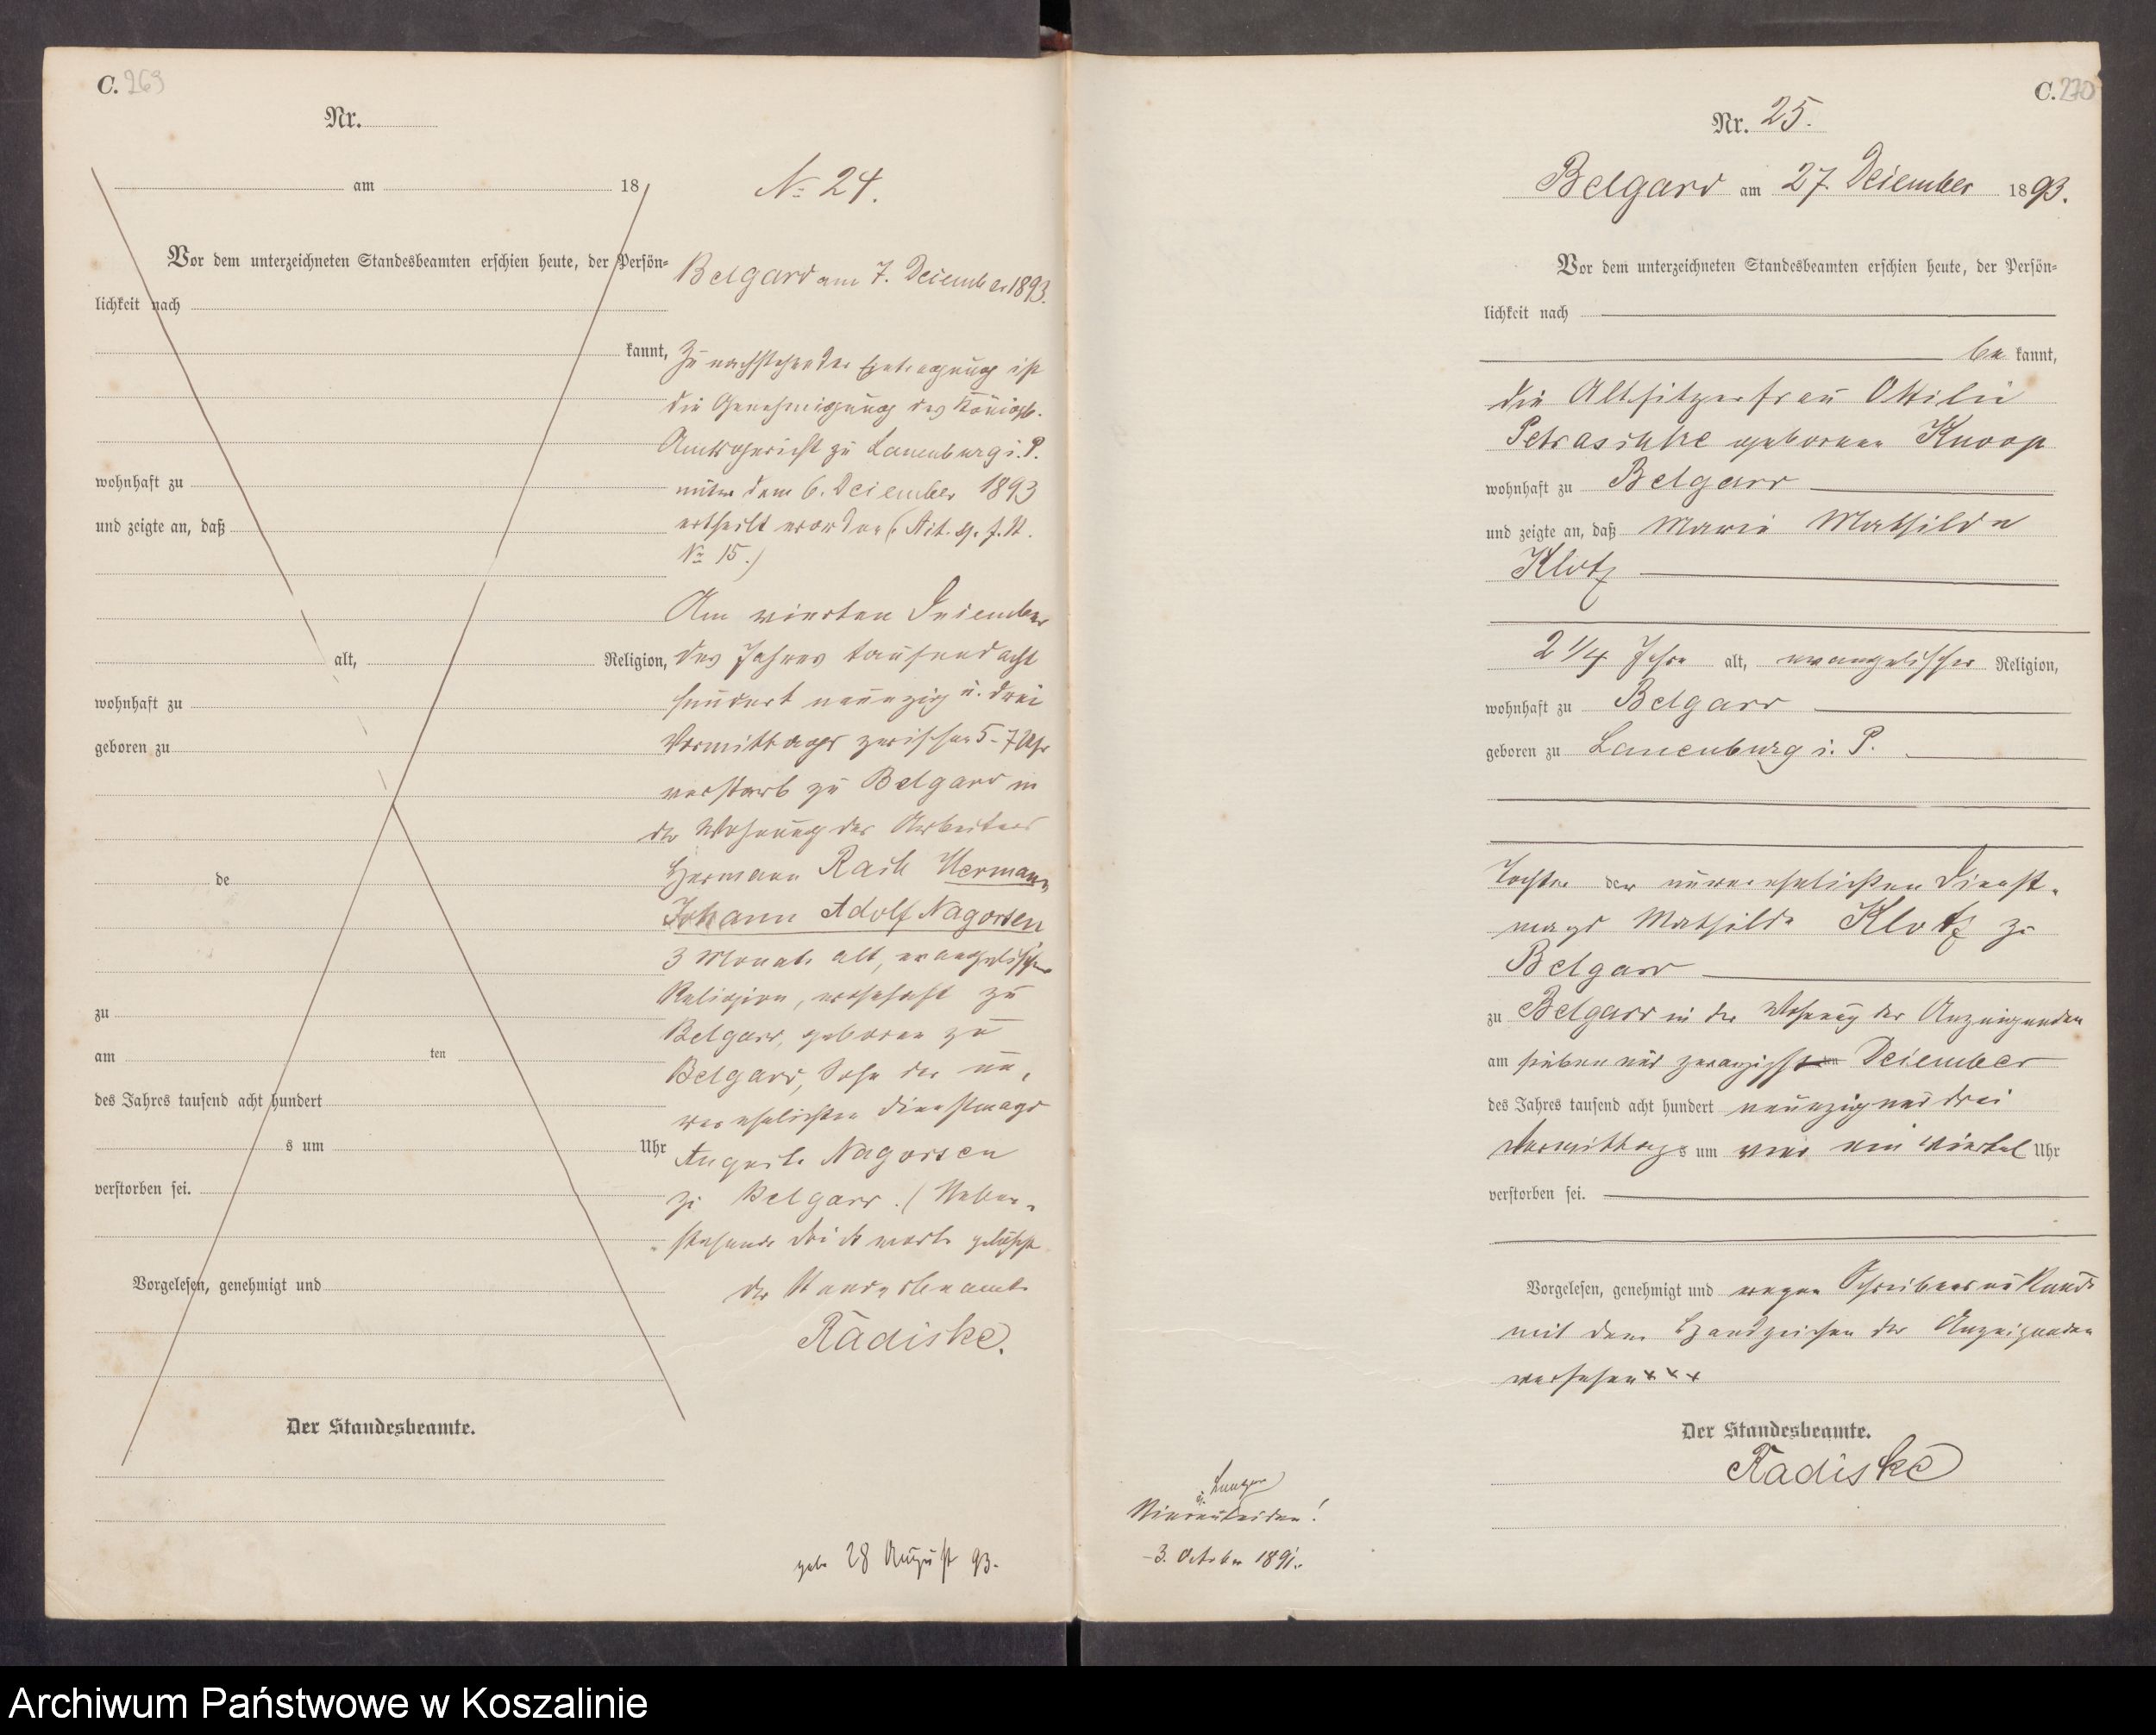 C. 263
Nr.
am 18
Vor dem unterzeichneten Standesbeamten erschien heute, der Persön-
lichkeit nach
kannt,
wohnhaft zu
und zeigte an, daß
alt, Religion,
wohnhaft zu
geboren zu
de
zu
am ten
des Jahres tausend acht hundert
s um Uhr
verstorben sei.
Vorgelesen, genehmigt und
Der Standesbeamte.
No 24.
Belgard am 7. Dezember 1893.
Zu nachstehender Eintragung ist
die Genehmigung des Königl.
Amtsgericht zu Lauenburg i. P.
unter dem 6. Dezember 1893
ertheilt worden (
No 15.)
Am vierten Dezember
des Jahres tausend acht
hundert neunzig u. drei
Vormittags zwischen 5-7 Uhr
verstarb zu Belgard in
der Wohnung des Arbeiters
Hermann Hermann
Johann Adolf Nagorsen
3 Monate alt, evangelischer
Religion, wohnhaft zu
Belgard, geboren zu
Belgard, Sohn der un-
verehelichten Dienstmagd
Auguste Nagorsen
zu Belgard. (Neben-
stehende Druckworte gelöscht
der Standesbeamte
Radiske.
geb. 28 August 93.
C. 270
Nr. 25.
Belgard am 27. Dezember 1893.
Vor dem unterzeichneten Standesbeamten erschien heute, der Persön-
lichkeit nach
be kannt,
die Altsitzerfrau Ottilie
Petraschke geborene Knoop
wohnhaft zu Belgard
und zeigte an, daß Marie Mathilde
Klotz
2 1/4 Jahre alt, evangelischer Religion,
wohnhaft zu Belgard
geboren zu Lauenburg i. P.
Tochter der unverehelichten Dienst-
magd Mathilde Klotz zu
Belgard
zu Belgard in der Wohnung der Anzeigenden
am sieben und zwanzigsten Dezember
des Jahres tausend acht hundert neunzig und drei
Vormittags um vier ein viertel Uhr
verstorben sei.
Vorgelesen, genehmigt und wegen Schreibensunkunde
mit dem Handzeichen der Anzeigenden
versehen + + +
Der Standesbeamte.
Radiske
u. Lungen
Nierenleiden!
3. October 1891.
Archiwum Państwowe w Koszalinie